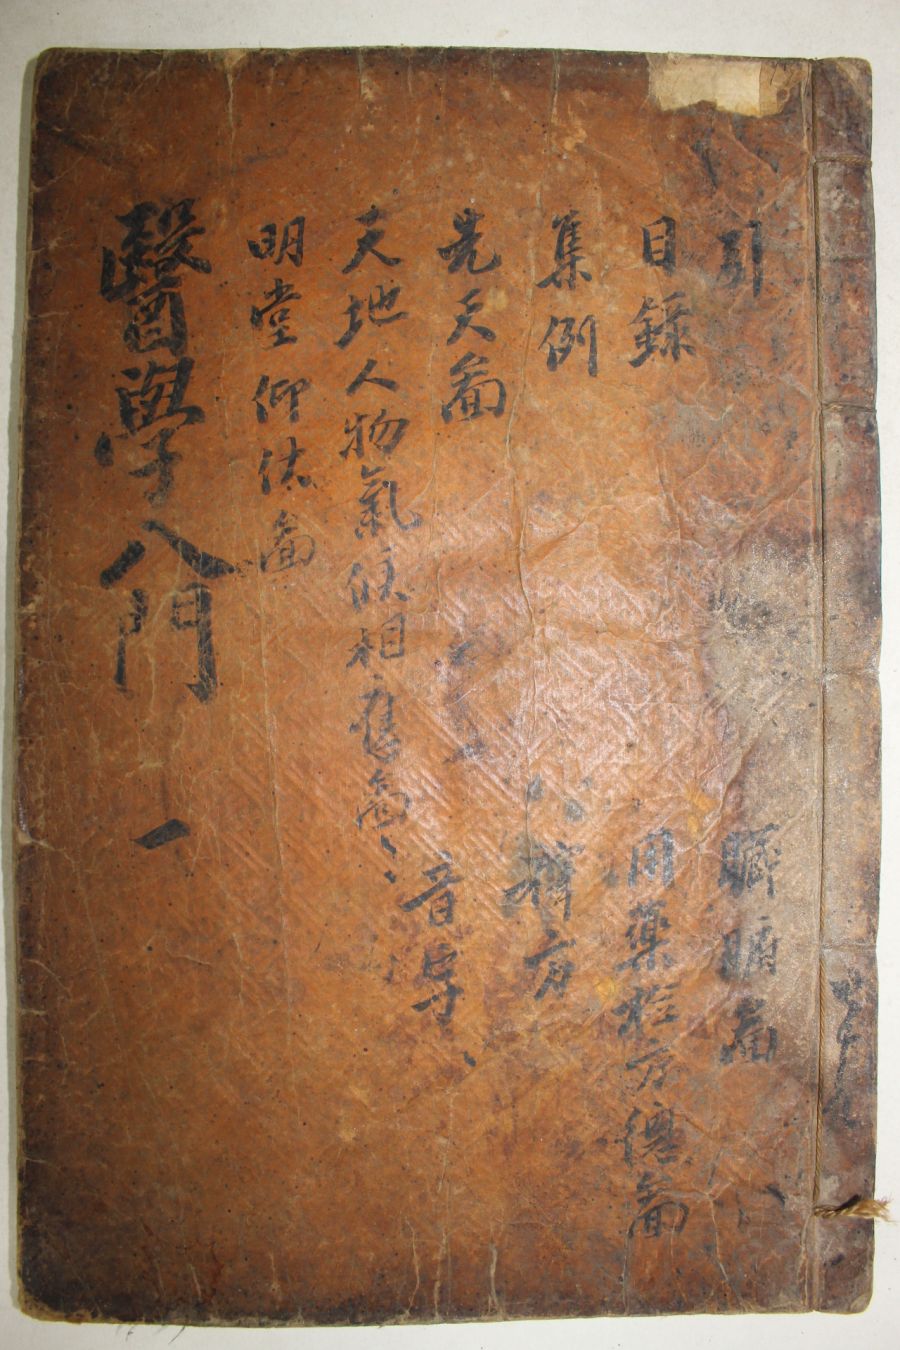 引
目錄
集例
先天啚
天地人物氣候相應啚
明堂仰伏啚
醫學入門 一
臟腑啚
用藥檢方總啚
音字